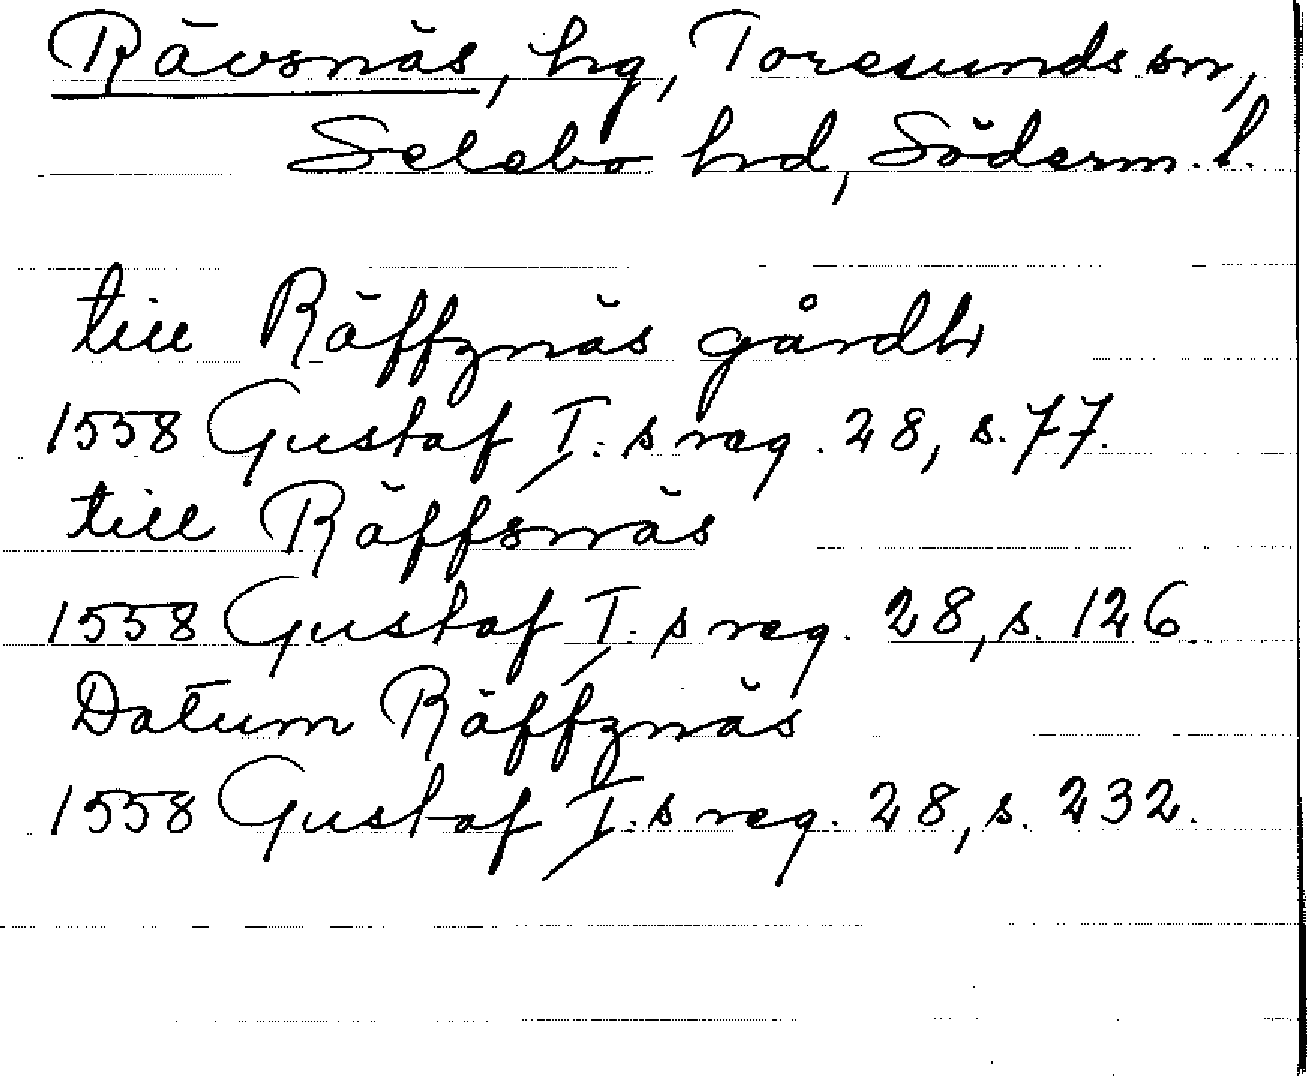 Rävsnäs, hg, Toresunds sn,
Selebo hd, Söderm. l.
till Räffznäs gårdh
1558 Gustaf I:s reg. 28, s. 77.
till Räffsnäs
1558 Gustaf I:s reg. 28, s. 126.
Datum Räffznäs
1558 Gustaf I:s reg. 28, s. 232.